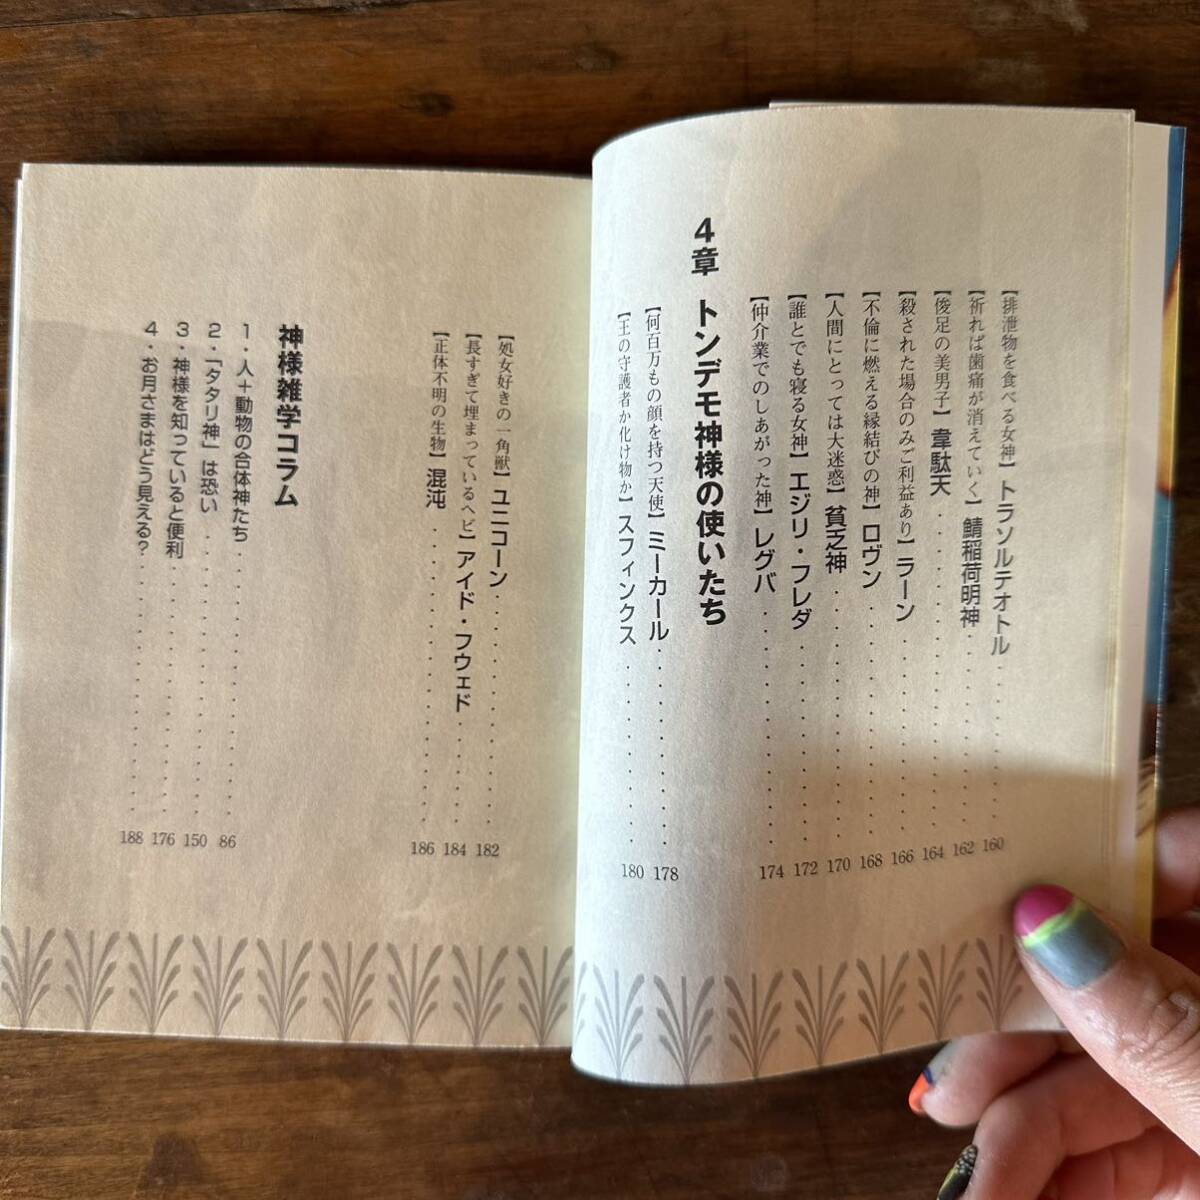 【排泄物を食べる女神】トラソルテオトル・・・・・・・・160
【祈れば歯痛が消えていく】鯖稲荷明神・・・・・・・・162
【俊足の美男子】韋駄天・・・・・・・・・・・・・164
【殺された場合のみご利益あり】ラーン・・・・・・・・166
【不倫に燃える縁結びの神】ロヴン・・・・・・・・・168
【人間にとっては大迷惑】貧乏神・・・・・・・・・・170
【誰とでも寝る女神】エジリ・フレダ・・・・・・・・172
【仲介業でのしあがった神】レグバ・・・・・・・・・174
4章 トンデモ神様の使いたち
【何百万もの顔を持つ天使】ミーカール・・・・・・・・178
【王の守護者か化け物か】スフィンクス・・・・・・・・180
【処女好きの一角獣】ユニコーン・・・・・・・・・・182
【長すぎて埋まっているヘビ】アイド・フウェド・・・・・184
【正体不明の生物】混沌・・・・・・・・・・・・・186
神様雑学コラム
1・人+動物の合体神たち・・・・・・・・・・・・86
2・「タタリ神」は恐い・・・・・・・・・・・・・150
3・神様を知っていると便利・・・・・・・・・・・176
4・お月さまはどう見える?・・・・・・・・・・・188